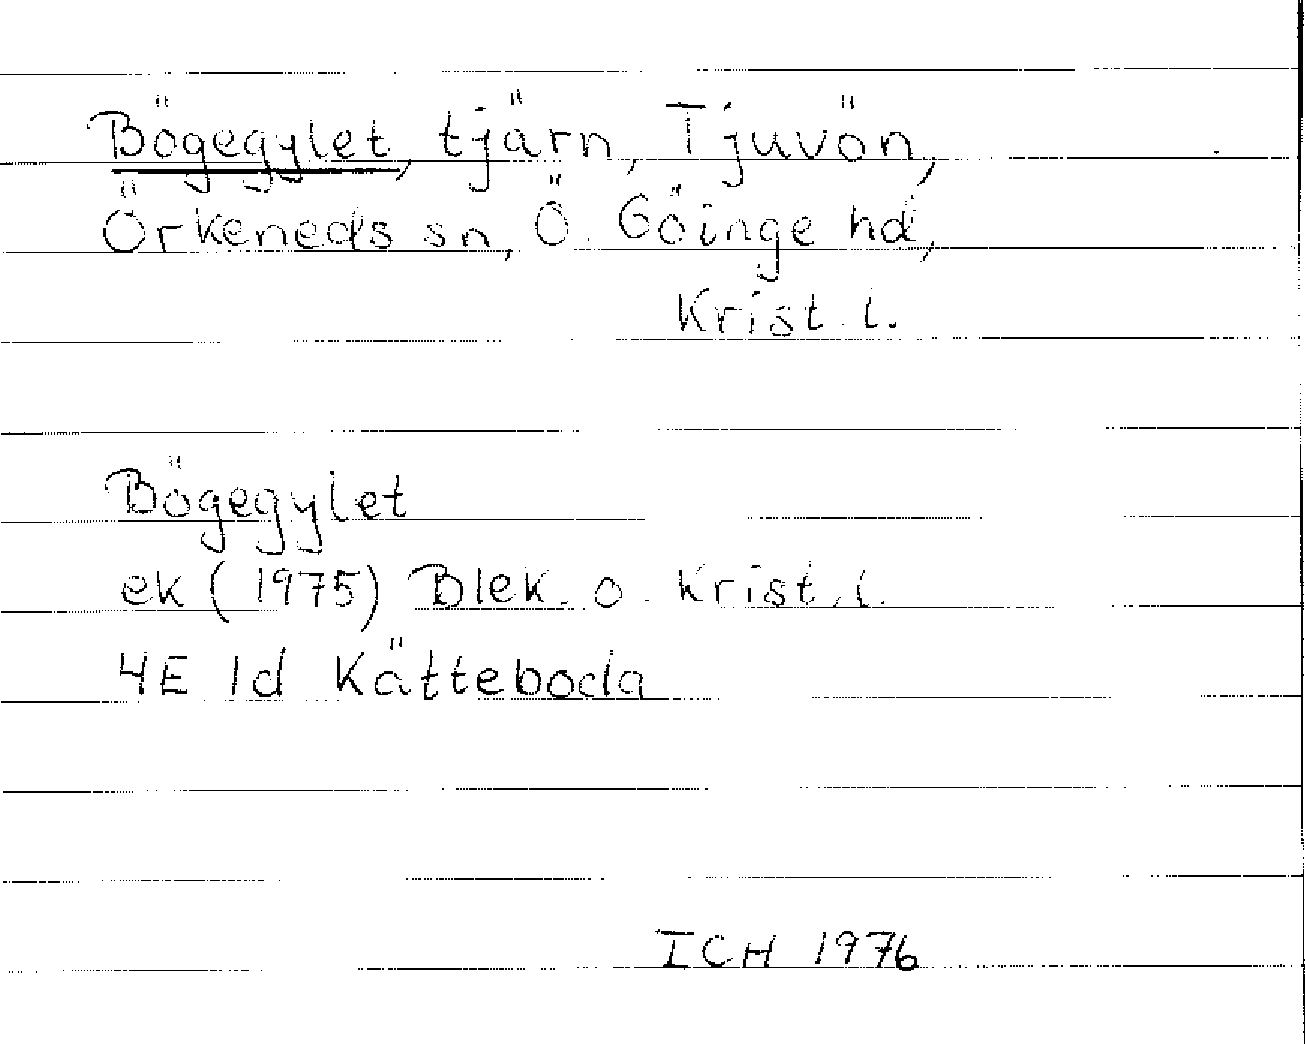 Bögegylet, tjärn, Tjuvön,
Örkeneds sn, Ö. Göinge hd,
Krist. l.
Bögegylet
ek (1975) Blek. o. Krist. l.
4E 1d Kätteboda
ICH 1976